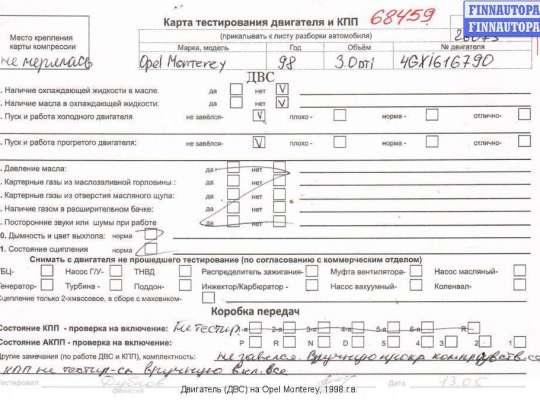 FINNAUTOPA
FINNAUTOPA
Место крепления
карты компрессии
не мерялась
Карта тестирования двигателя и КПП 68459
(прикалывать к листу разборки автомобиля)
Марка, модель Год Объём № двигателя
Opel Monterey 98 3.0 DTI 4GX1616790
ДВС
. Наличие охлаждающей жидкости в масле. да нет V
. Наличие масла в охлаждающей жидкости: да нет V
. Пуск и работа холодного двигателя не завёлся- V плохо - норма - отлично-
. Пуск и работа прогретого двигателя: не завёлся- V плохо - норма - отлично-
. Давление масла: да нет
. Картерные газы из маслозаливной горловины : да нет
. Картерные газы из отверстия масляного щупа: да нет
. Наличие газом в расширительном бачке: да нет
. Посторонние звуки или шумы при работе да нет
0. Дымность и цвет выхлопа норма
1. Состояние сцепления норма
Снимать с двигателя не прошедшего тестирование (по согласованию с коммерческим отделом)
ГБЦ- Насос Г/У- ТНВД Распределитель зажигания- Муфта вентилятора- Насос масляный-
Генератор- Турбина - Поддон- Инжектор/Карбюратор - Насос вакуумный- Коленвал-
Сцепление только 2-хмассовое, в сборе с маховиком-
Коробка передач
Состояние КПП - проверка на включение: Не тестир. 1-я 2-я 3-я 4-я 5-я 6-я R
Состояние АКПП - проверка на включение: P R N D 5 4 3 2 1
Другие замечания (по работе ДВС и КПП), комплектность: не завелся. Вручную
КПП не тестир-сь вручную вкл. все
Тестировал Дата 13.05
фамилия
Двигатель (ДВС) на Opel Monterey, 1998 г.в.